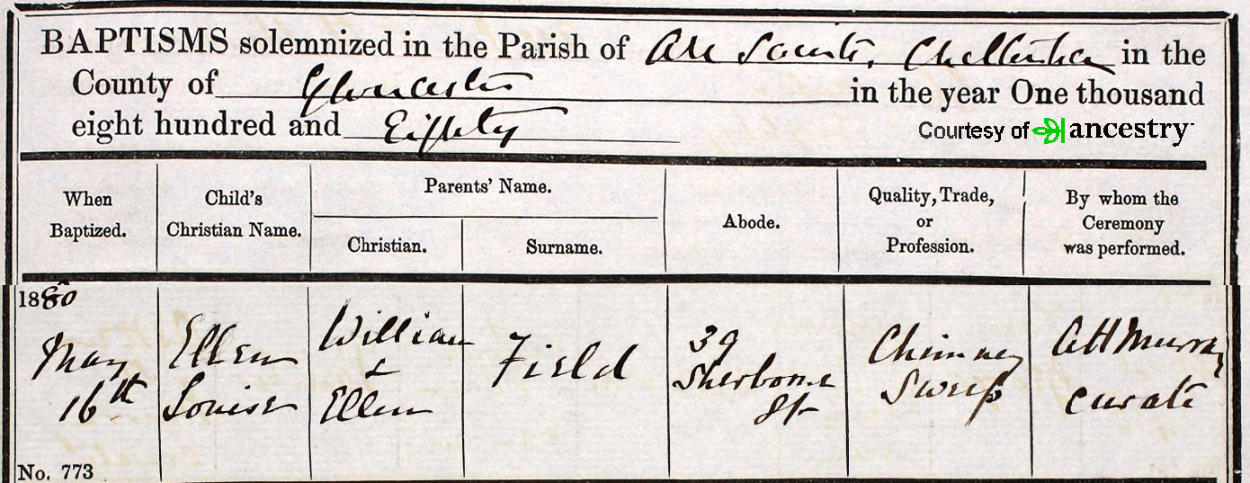 BAPTISMS solemnized in the Parish of All Saints, Cheltenham in the
County of Gloucester in the year One thousand
eight hundred and Eighty
Courtesy of ancestry
When
Baptized.
Child's
Christian Name.
Parents' Name.
Christian.
Surname.
Abode.
Quality, Trade,
or
Profession.
By whom the
Ceremony
was performed.
1880
May
16th
Ellen
Louisa
William
&
Ellen
Field
39
Sherborne
St
Chimney
Sweep
A H Murray
Curate
No. 773